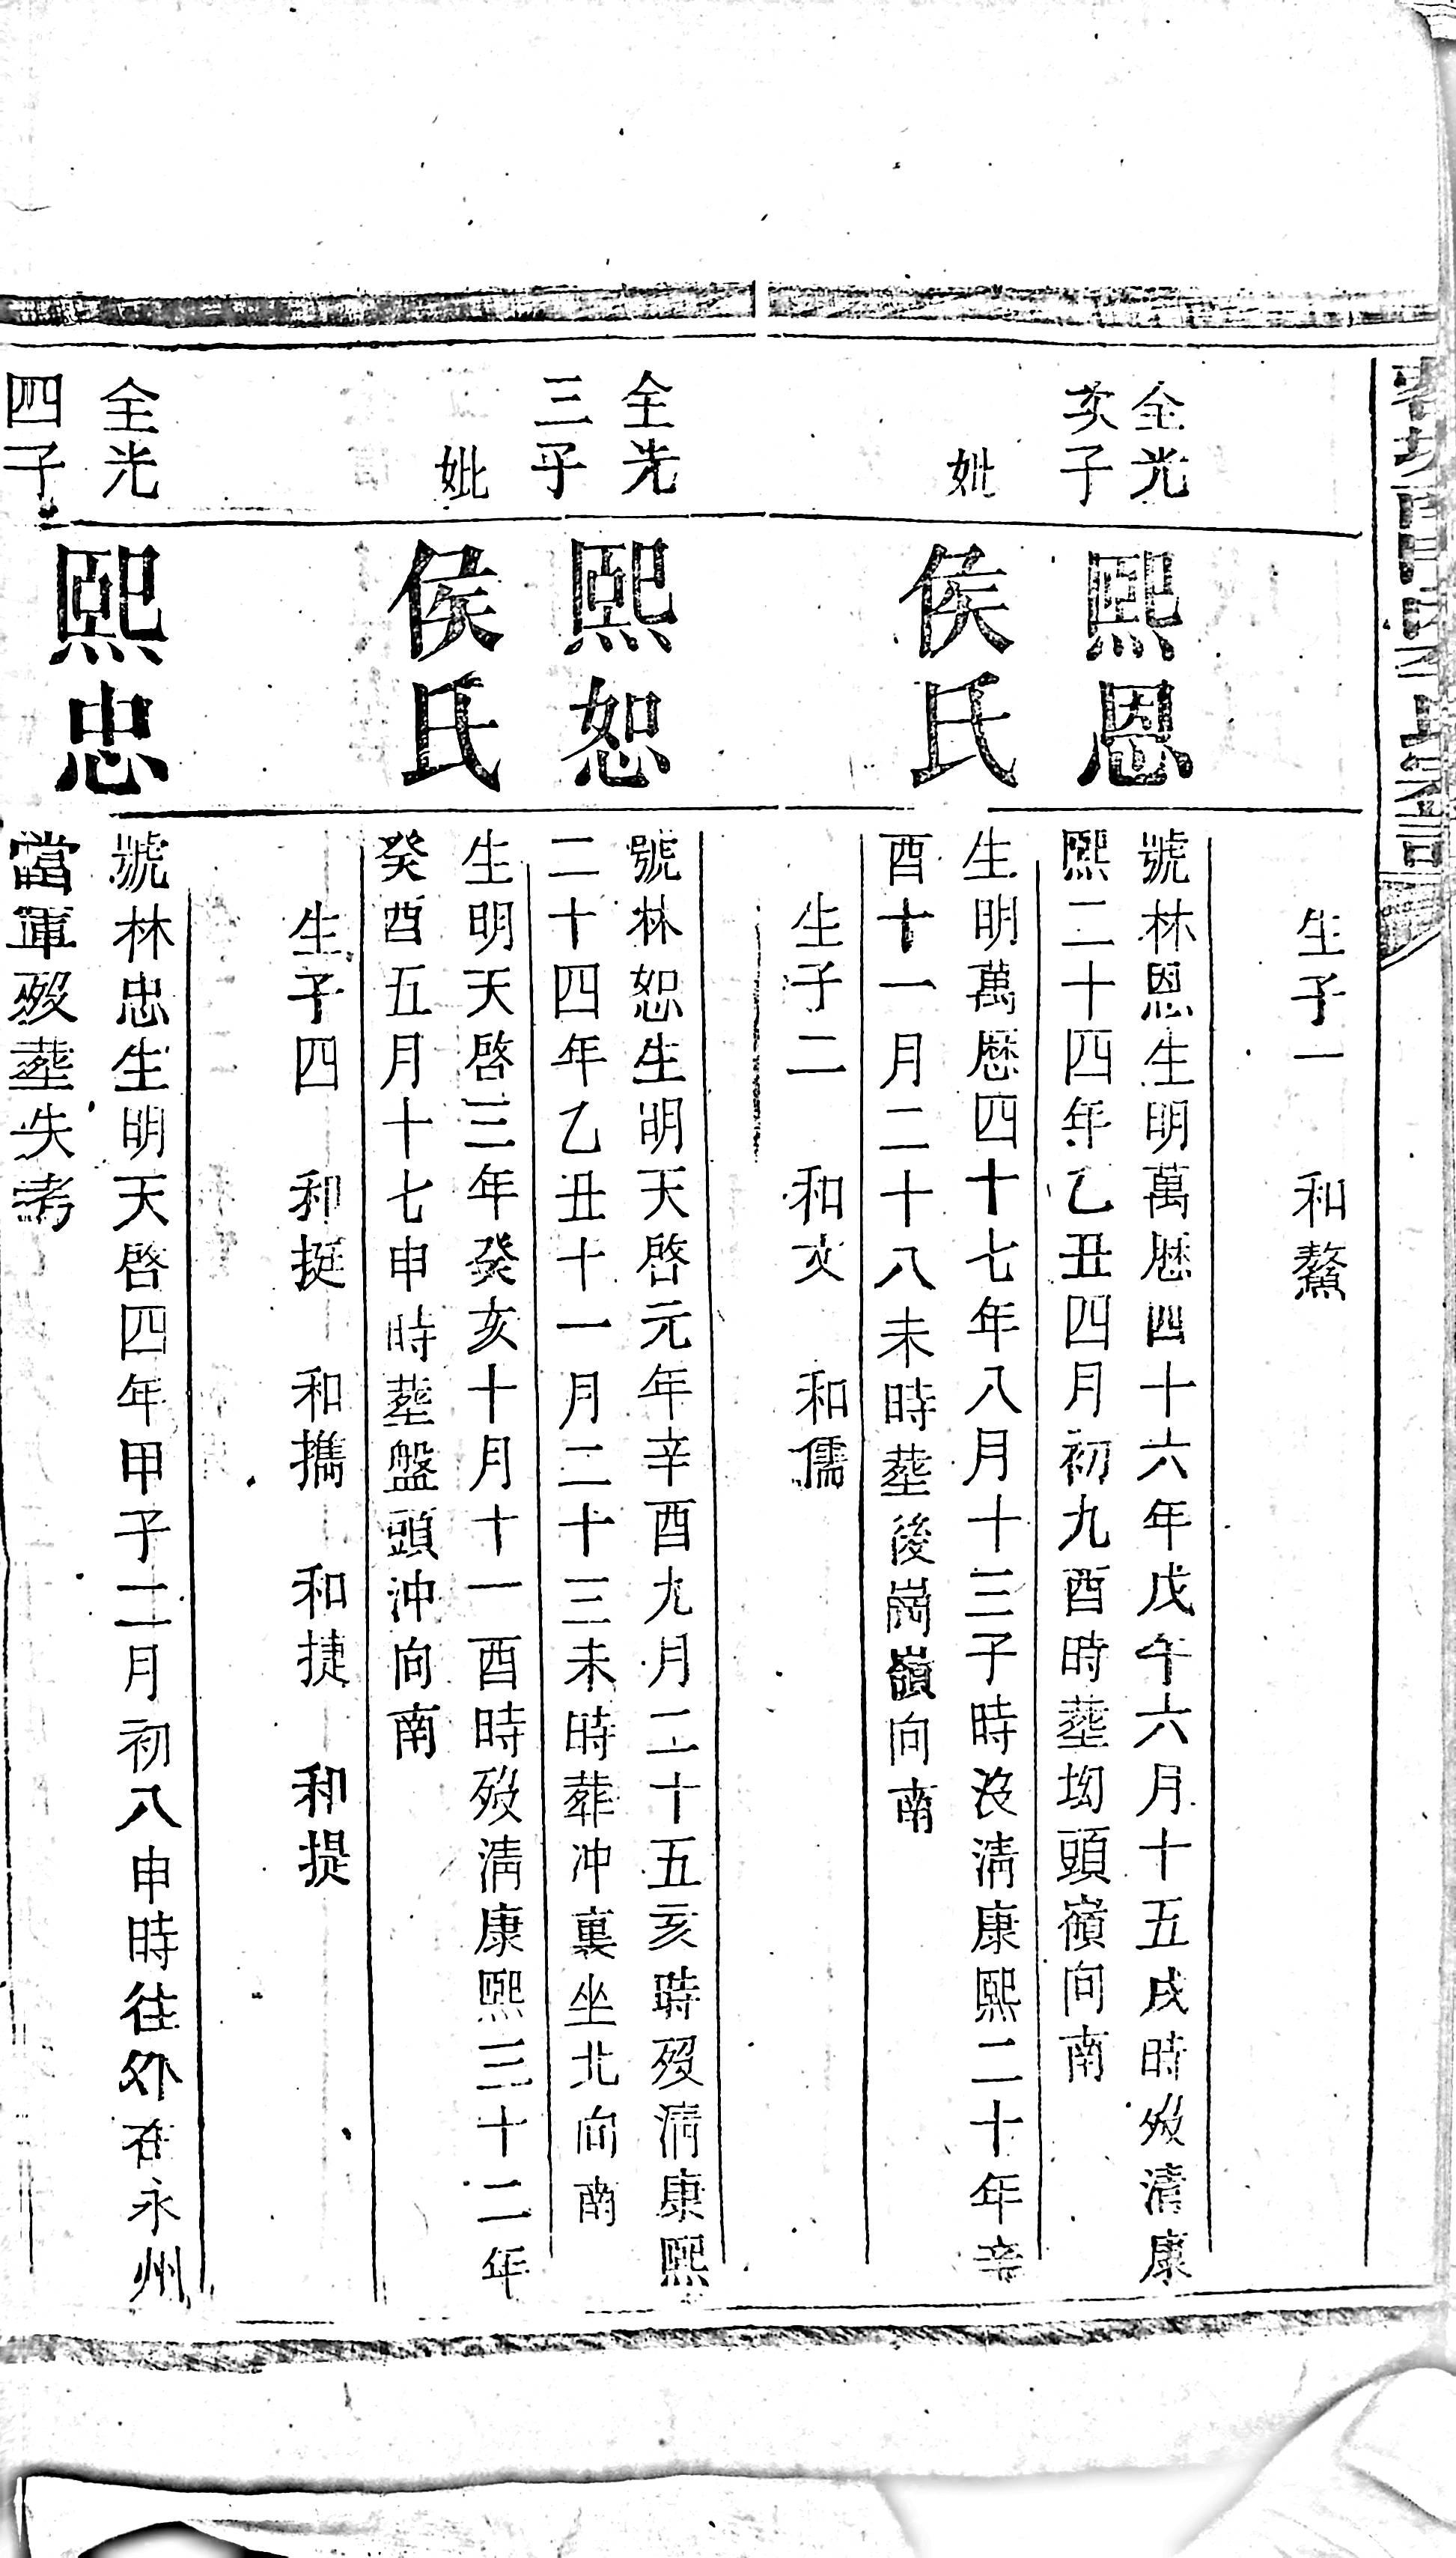 生子一 和鰲
全光
次子
熙恩
號林恩生明萬厯四十六年戊午六月十五戌時殁清康
熙二十四年乙丑四月初九酉時塟坳頭嶺向南
妣
侯氏
生明萬厯四十七年八月十三子時没清康熙二十年辛
酉十一月二十八未時塟後崗嶺向南
生子二 和文 和儒
全光
三子
熙恕
號林恕生明天啓元年辛酉九月二十五亥時殁清康熙
二十四年乙丑十一月二十三未時葬冲裏坐北向南
妣
侯氏
生明天啓三年癸亥十月十一酉時殁清康熙三十二年
癸酉五月十七申時塟盤頭沖向南
生子四 和挺 和携 和捷 和提
全光
四子
熙忠
號林忠生明天啓四年甲子二月初八申時往外在永州
當軍殁塟失考